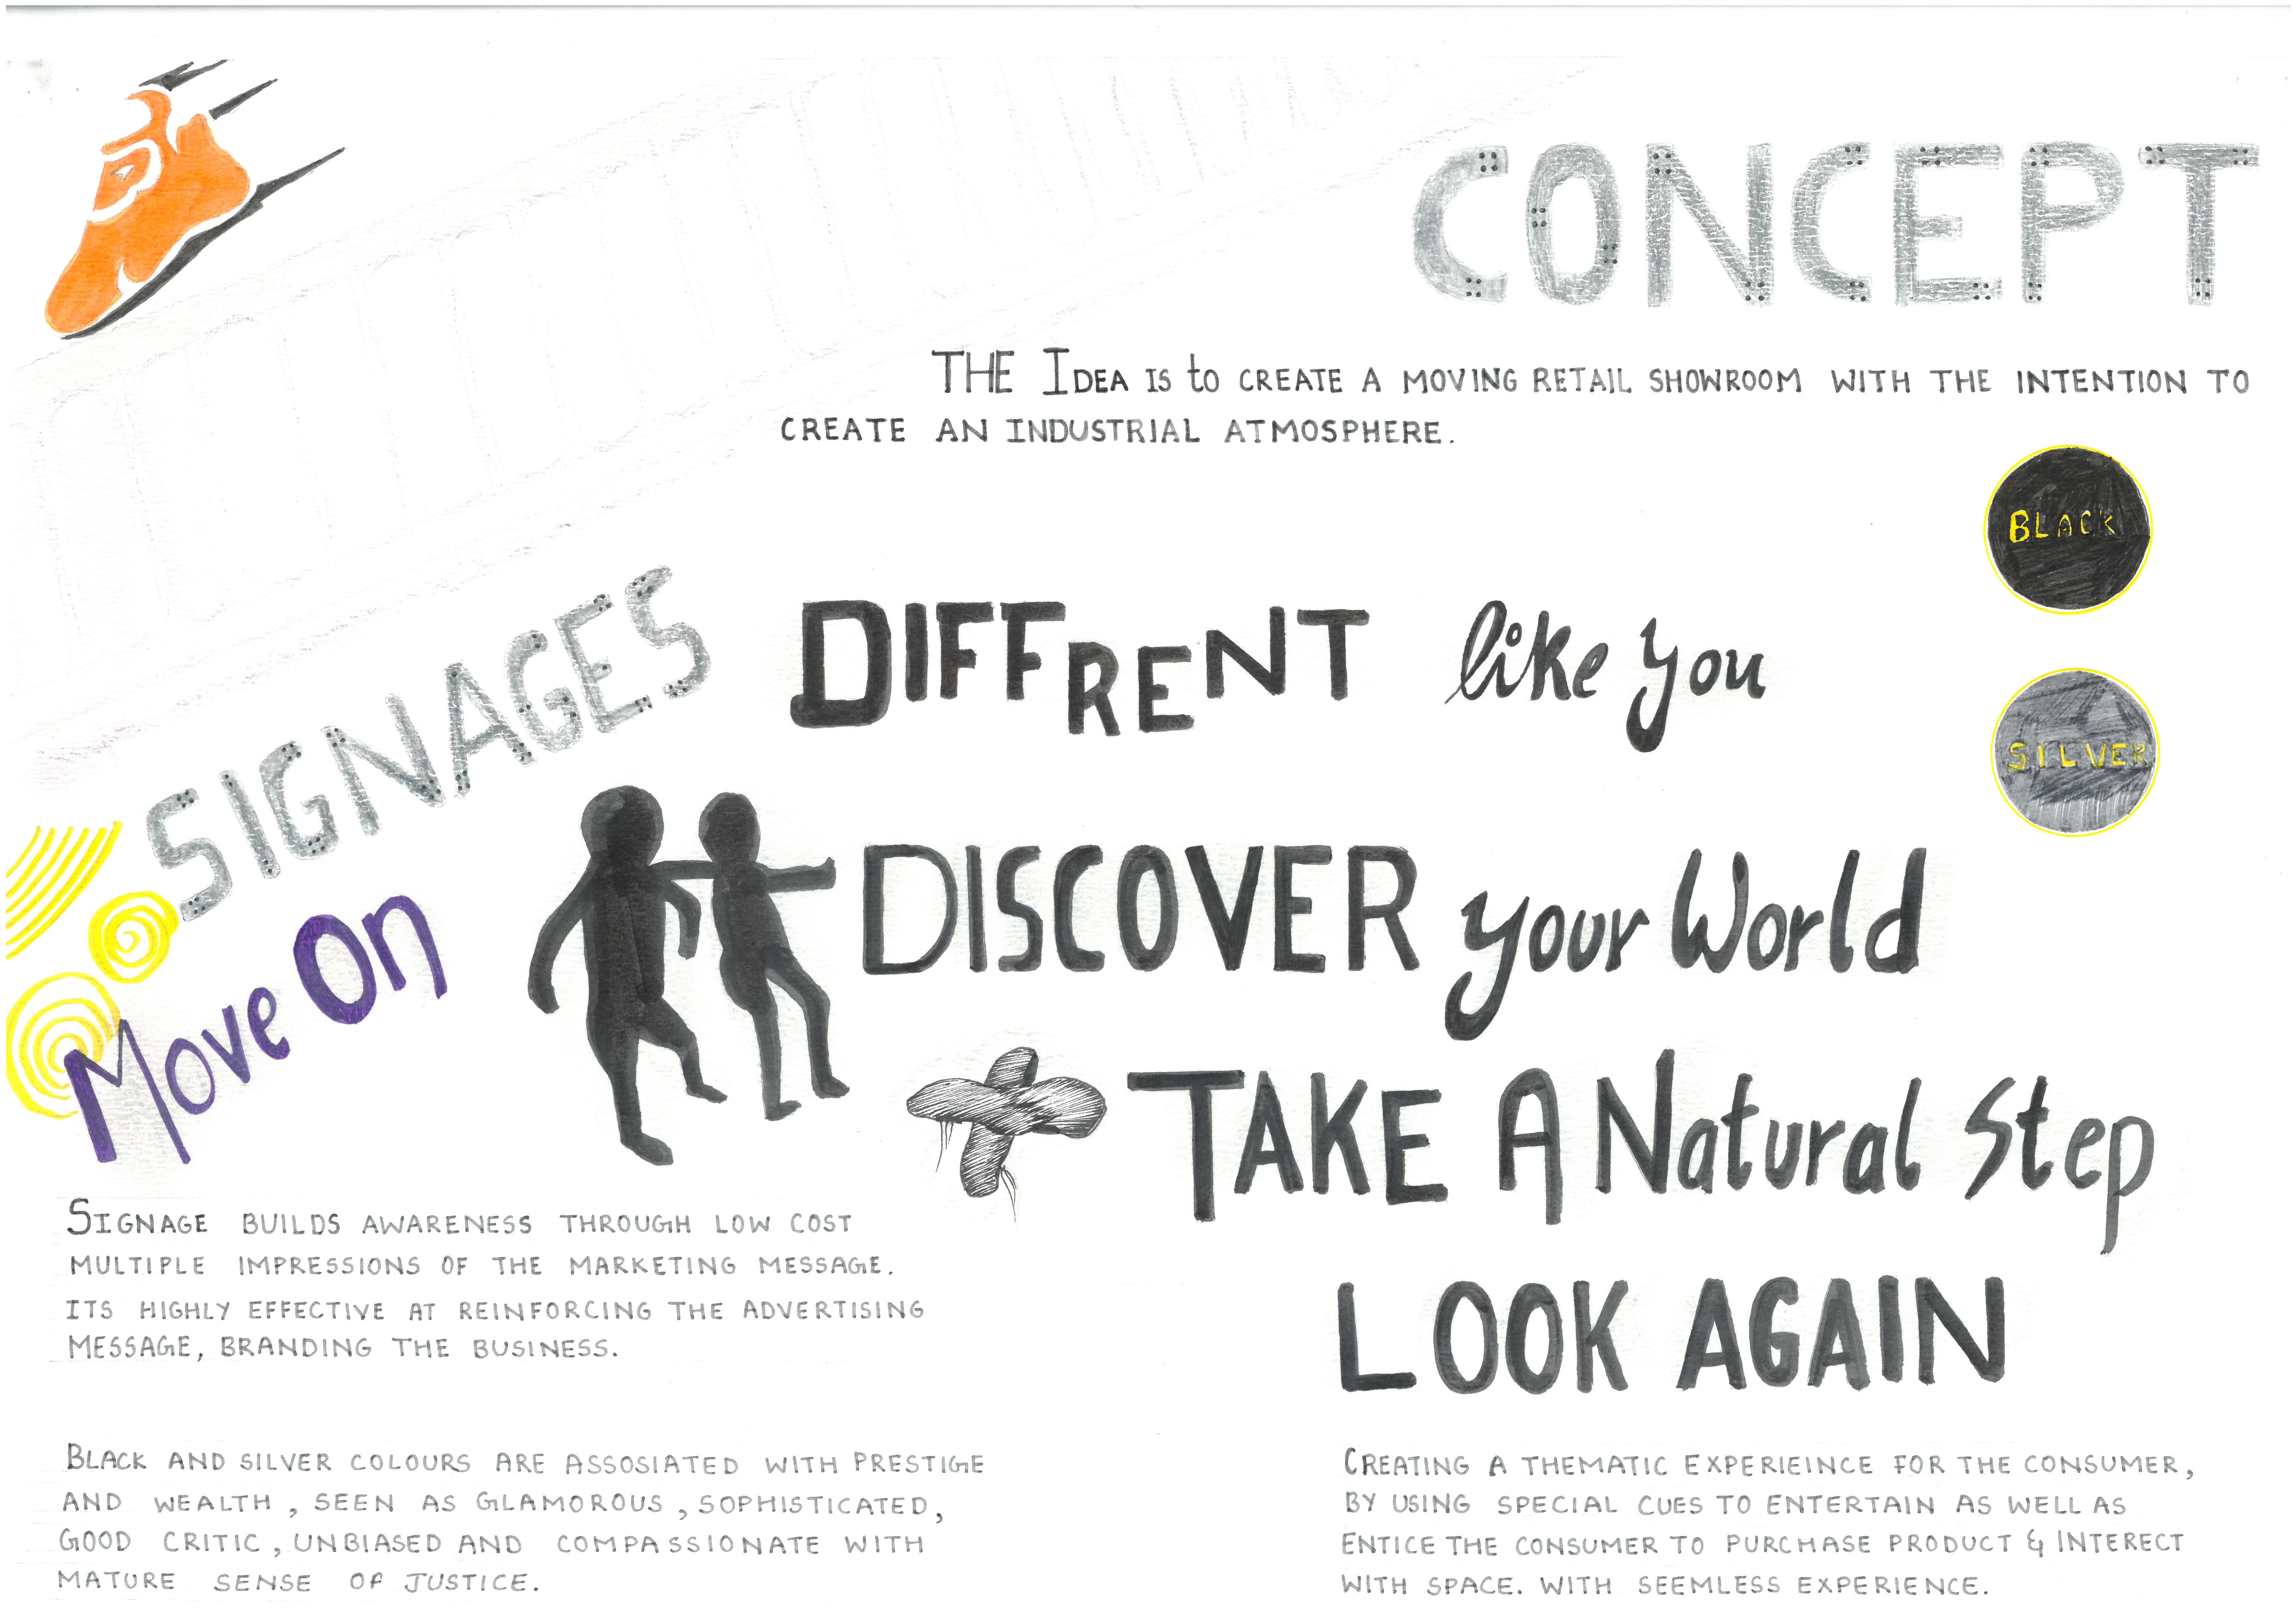 CONCEPT
THE IDEA IS to CREATE A MOVING RETAIL SHOWROOM WITH THE INTENTION TO
CREATE AN INDUSTRIAL ATMOSPHERE.
BLACK
SILVER
SIGNAGES
Move On
DIFFRENT like you
DISCOVER your World
TAKE A Natural Step
LOOK AGAIN
SIGNAGE BUILDS AWARENESS THROUGH LOW COST
MULTIPLE IMPRESSIONS OF THE MARKETING MESSAGE.
ITS HIGHLY EFFECTIVE AT REINFORCING THE ADVERTISING
MESSAGE, BRANDING THE BUSINESS.
BLACK AND SILVER COLOURS ARE ASSOSIATED WITH PRESTIGE
AND WEALTH, SEEN AS GLAMOROUS, SOPHISTICATED,
GOOD CRITIC, UNBIASED AND COMPASSIONATE WITH
MATURE SENSE OF JUSTICE.
CREATING A THEMATIC EXPERIEINCE FOR THE CONSUMER,
BY USING SPECIAL CUES TO ENTERTAIN AS WELL AS
ENTICE THE CONSUMER TO PURCHASE PRODUCT & INTERECT
WITH SPACE. WITH SEEMLESS EXPERIENCE.